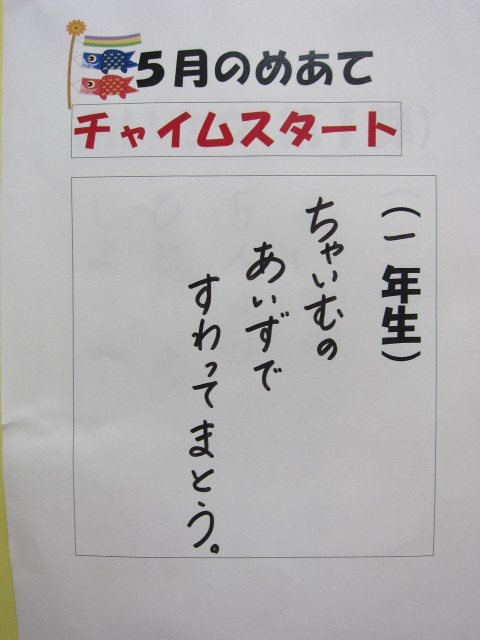 ５月のめあて
チャイムスタート
（一年生）
ちゃいむの
あいずで
すわってまとう。